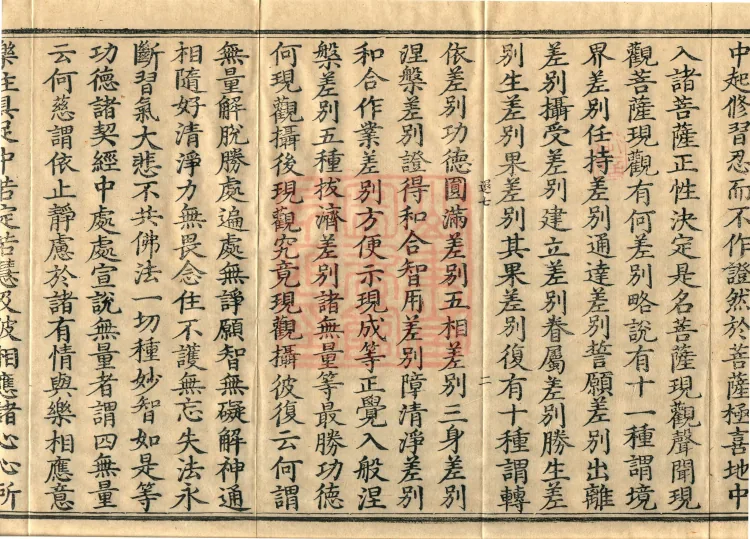 中起修習忍而不作證然於菩薩極喜地中
入諸菩薩正性決定是名菩薩現觀聲聞現
觀菩薩現觀有何差別略說有十一種謂境
界差別任持差別通達差別誓願差別出離
差別攝受差別建立差別眷屬差別勝生差
別生差別果差別其果差別復有十種謂轉
選七 二
依差別功德圓滿差別五相差別三身差別
涅槃差別證得和合智用差別障清淨差別
和合作業差別方便示現成等正覺入般涅
槃差別五種拔濟差別諸無量等最勝功德
何現觀攝後現觀究竟現觀攝彼復云何謂
無量解脫勝處遍處無諍願智無礙解神通
相隨好清淨力無畏念住不護無忘失法永
斷習氣大悲不共佛法一切種妙智如是等
功德諸契經中處處宣說無量者謂四無量
云何慈謂依止靜慮於諸有情與樂相應意
樂住具足中若定若慧及彼相應諸心心所